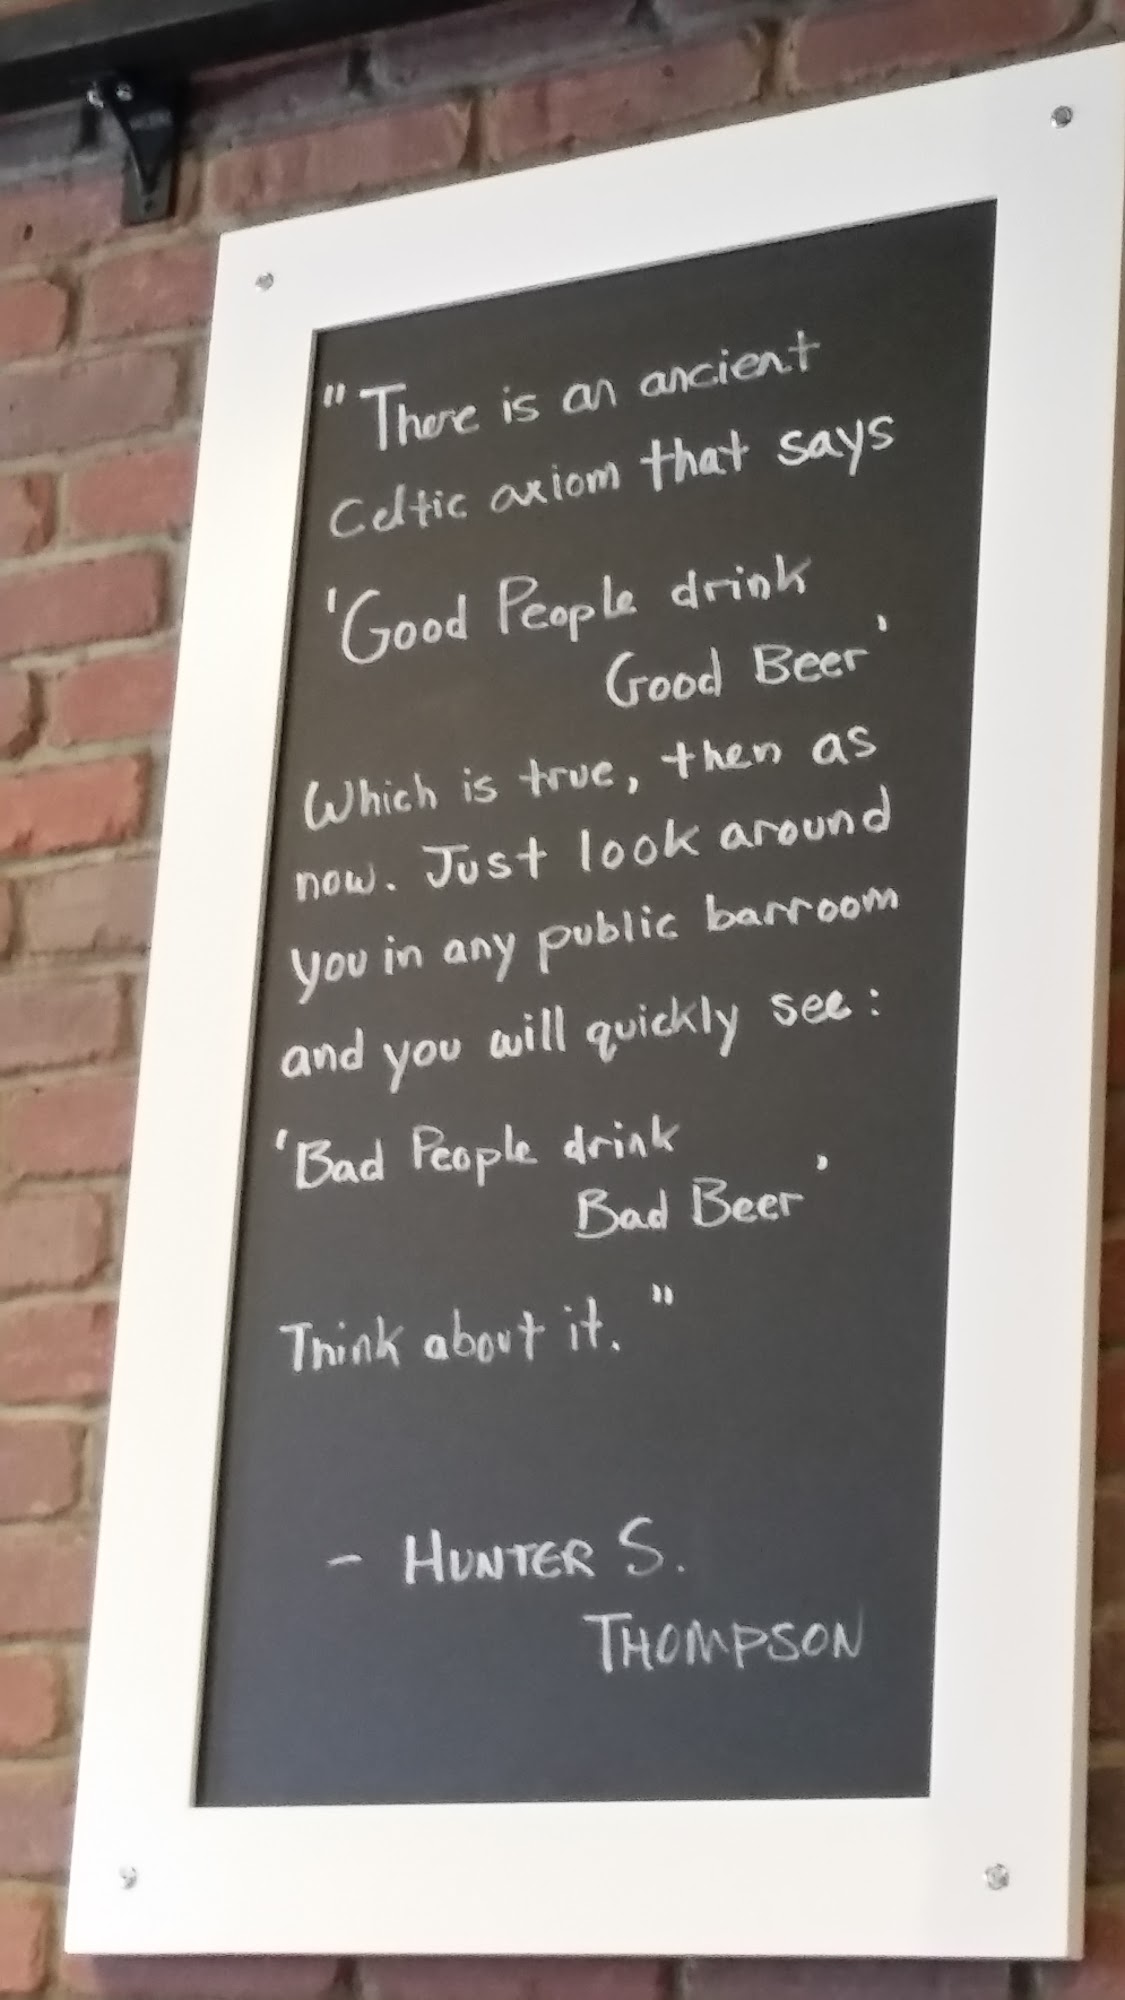 "There is an ancient
Celtic axiom that says
'Good People drink
Good Beer'
Which is true, then as
now. Just look around
you in any public barroom
and you will quickly see:
'Bad People drink
Bad Beer'
Think about it."
- HUNTER S.
THOMPSON